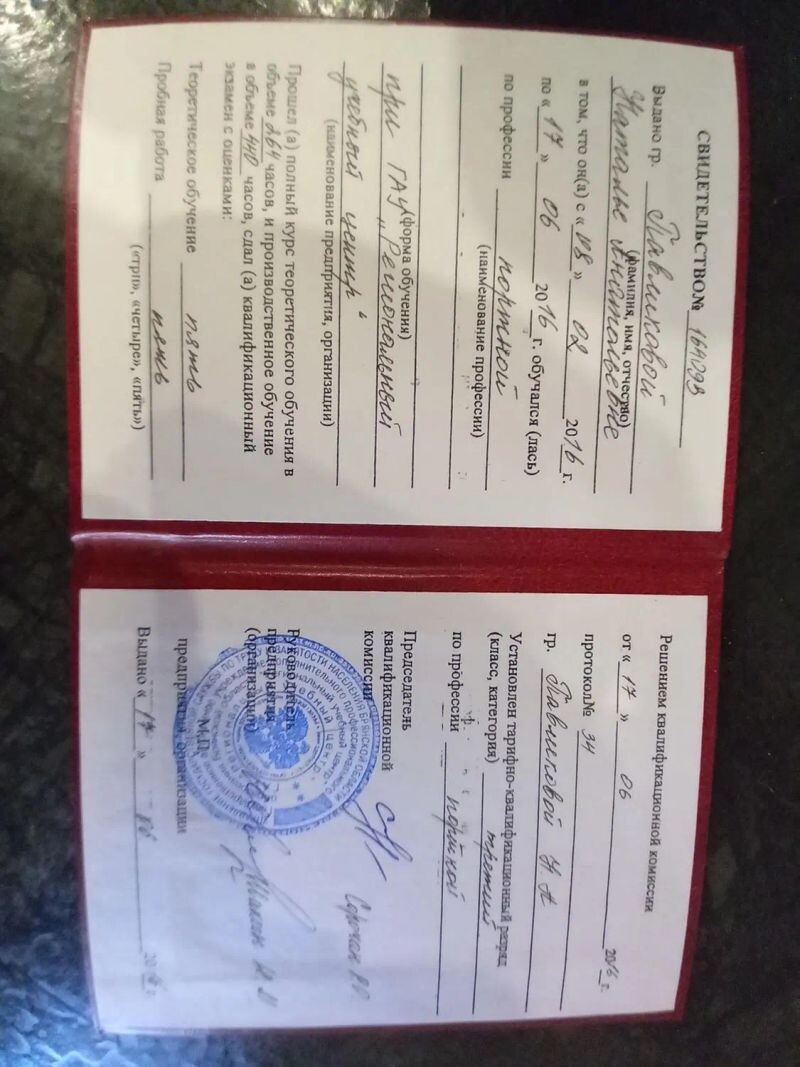 СВИДЕТЕЛЬСТВО№ 164293
Выдано гр. Павликовой
(фамилия, имя, отчество)
Наталье Анатольевне
в том, что он(а) с «08» 02 2016 г.
по «17» 06 2016 г. обучался (лась)
по профессии портной
(наименование профессии)
(форма обучения)
при ГАУ „Региональный
учебный центр“
(наименование предприятия, организации)
Прошел (а) полный курс теоретического обучения в
объеме 264 часов, и производственное обучение
в объеме 440 часов, сдал (а) квалификационный
экзамен с оценками:
Теоретическое обучение пять
Пробная работа пять
(«три», «четыре», «пять»)
Решением квалификационной комиссии
от «17» 06 2016 г.
протокол№ 34
гр. Павликовой Н А
Установлен тарифно-квалификационный разряд
(класс, категория) третий
по профессии портной
Председатель
квалификационной
комиссии
Руководитель
предприятия
(организации)
М.П.
предприятия, организации
Выдано «17» 06